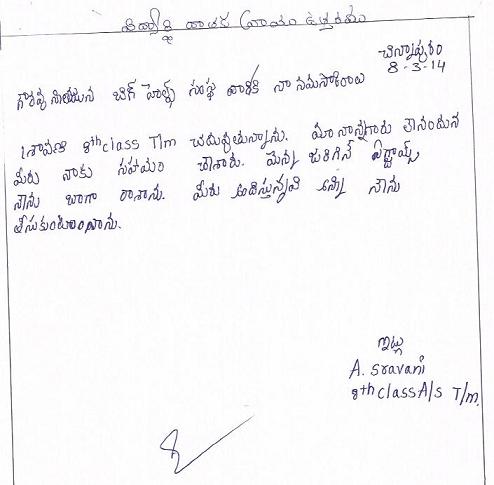 విద్యార్థి దాతకు వ్రాయు ఉత్తరము
చిన్నాపురం
8-3-14
గౌరవ్వనియులైన బిగ్ హెల్ప్ సంస్థ వారికి నా నమస్కారాలు
శ్రావణి 8th class T/m చదువుతున్నాను. మా నాన్నగారు లేనందున
మీరు నాకు సహాయం చేశారు. మొన్న జరిగిన ఎగ్జామ్స్
నేను బాగా రాశాను. మీరు అందిస్తున్నవి అన్ని నేను
తీసుకుంటున్నాను.
ఇట్లు
A. Sravani
8th class A/s T/m.